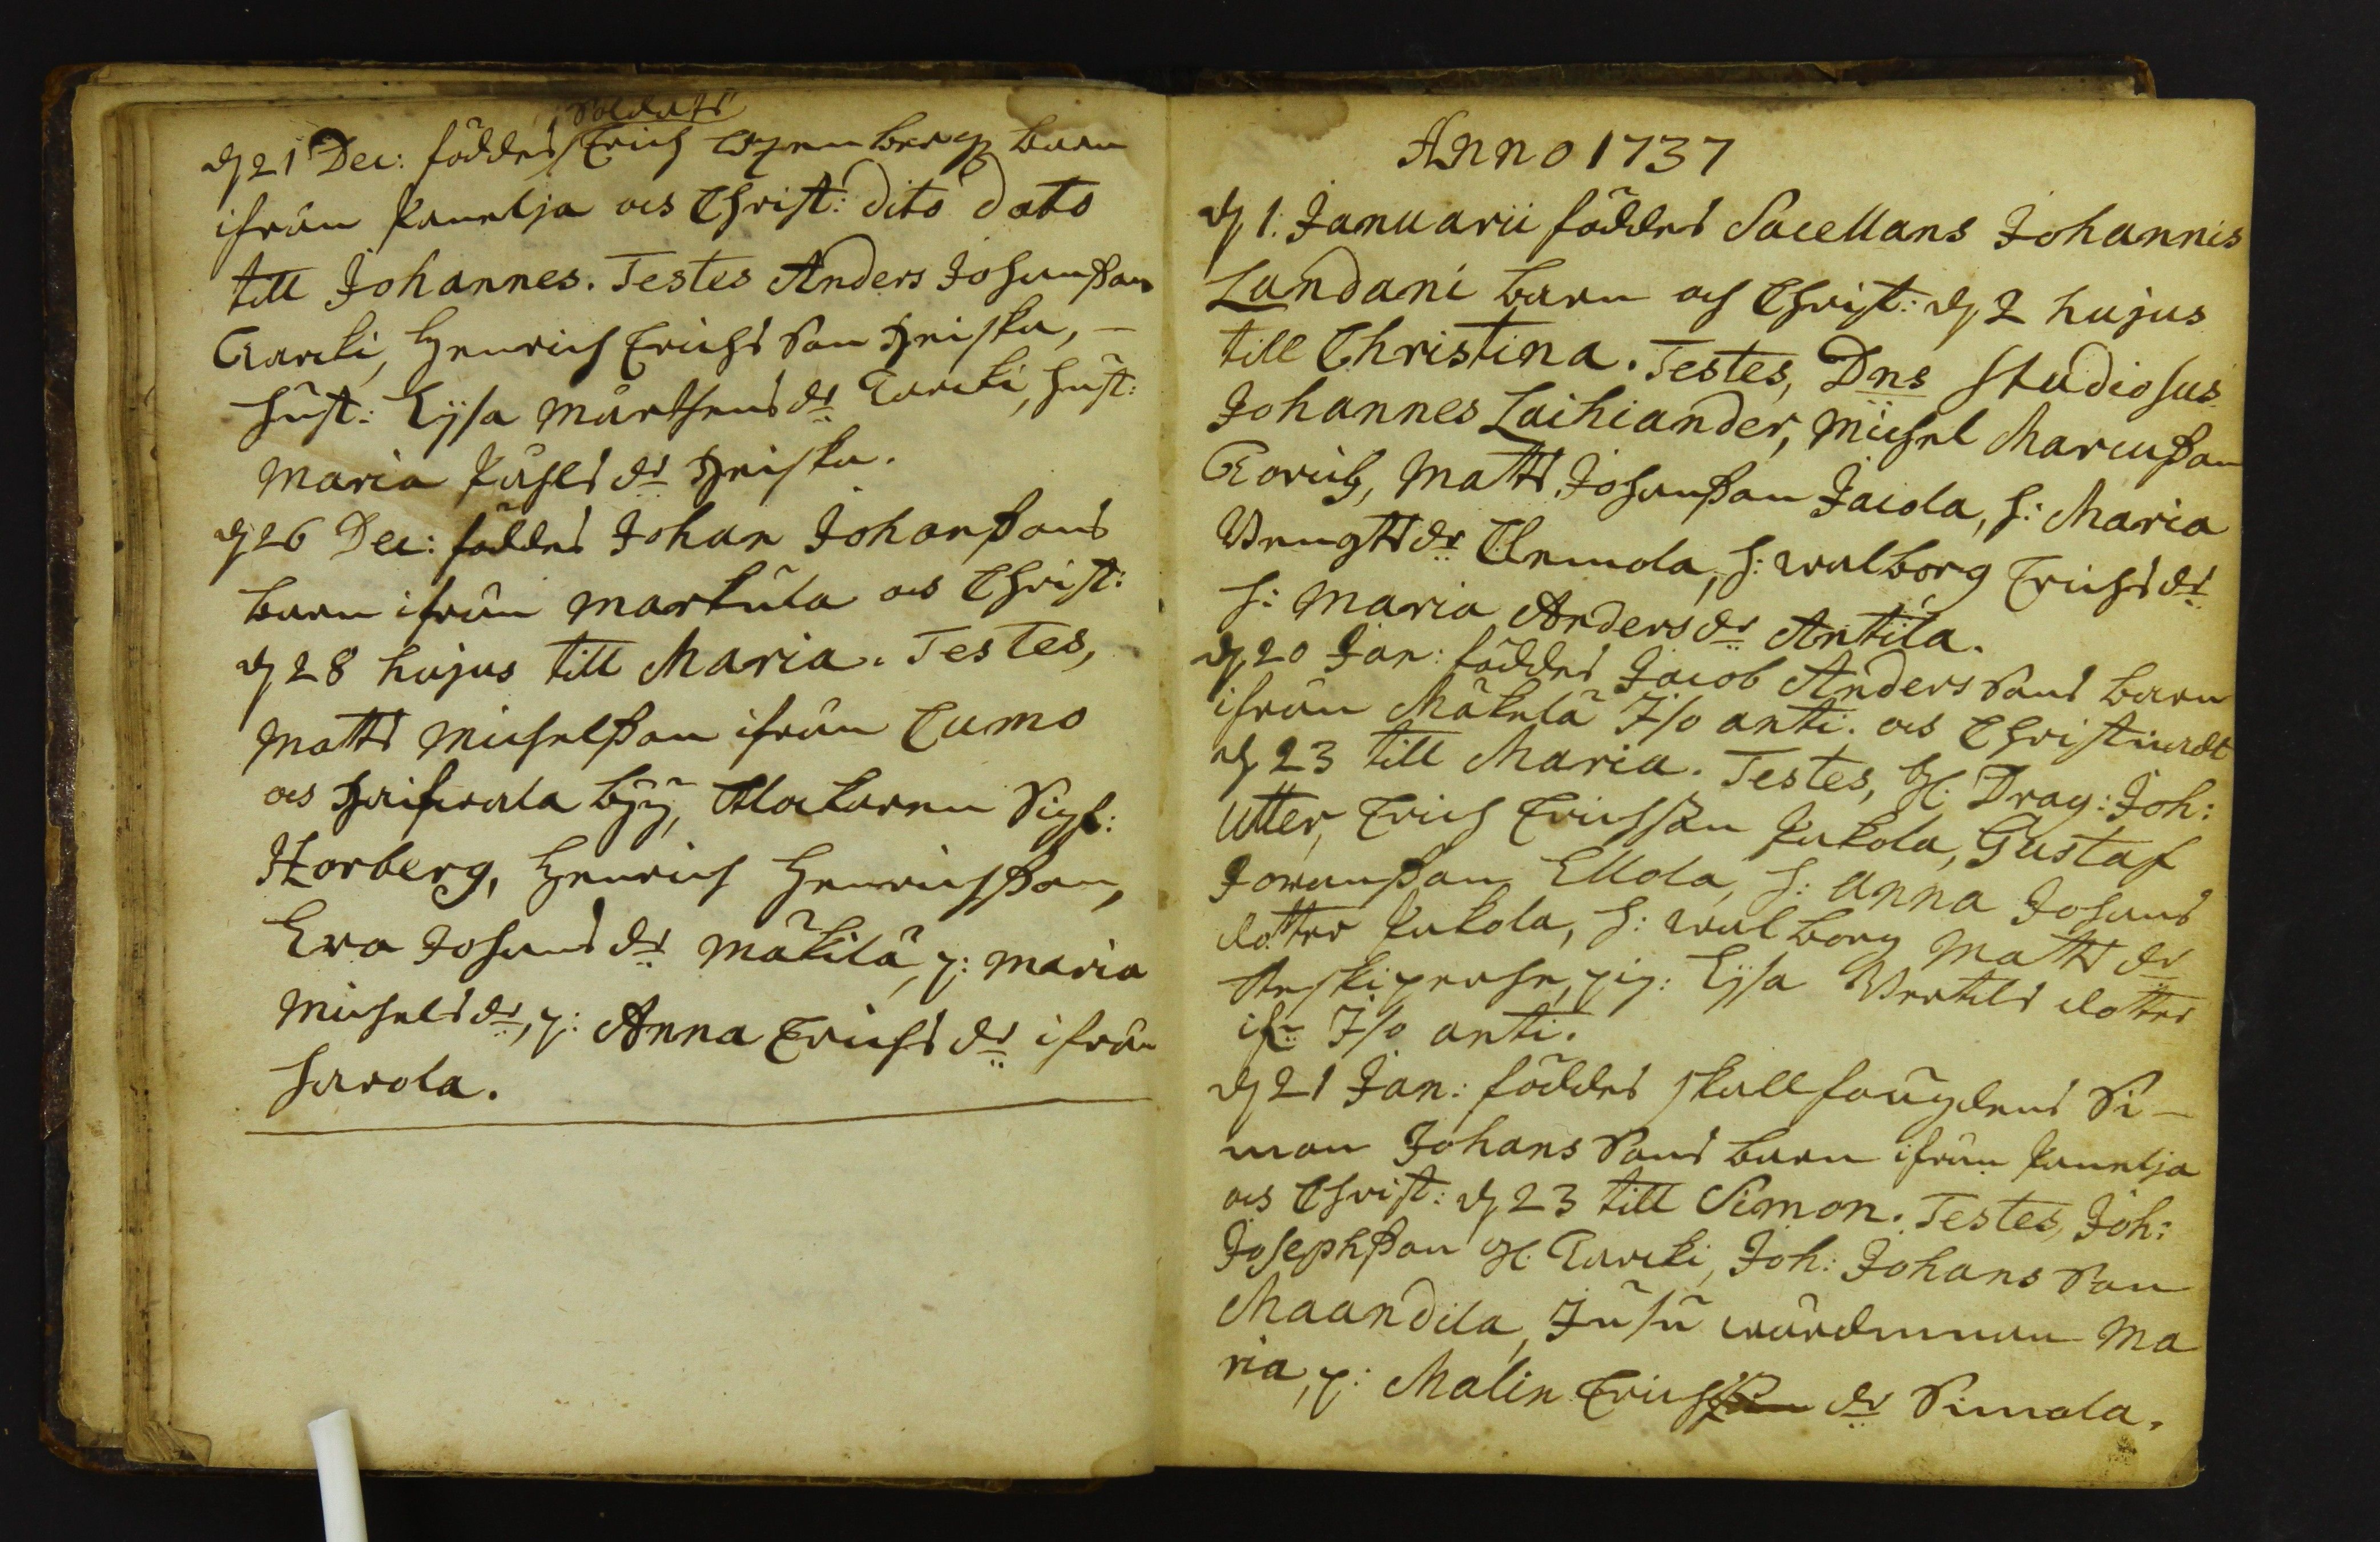 Soldats
d 21 Dec: föddes Erich barn
ifrån Panelja och Christ: dito dato
till Johannes. Testes Anders Johansson
Tarcki, Henrich Erichs Son Heiska, –
hust: Lysa Mårthens dr Tarcki, hust:
Maria Påhls dr Heiska.
d 26 Dec: föddes Johan Johanssons
barn ifrån Markula och Christ:
d 28 hujus till Maria. Testes,
Matts Michelsson ifrån Cumo
och by, Klockaren Sigf:
Norberg, Henrich Henrichsson,
Eva Johans dr Mäkilä, p: Maria
Michels dr, p: Anna Erichs dr ifrån
harola.
Anno 1737
d 1. Januarii föddes Sacellans Johannis
Lundani barn och Christ: d 2 hujus
till Christina. Testes, Dns Studiosus
Johannes Laihiander, Michel Marcusson
Matts Johansson Jacola, h: Maria
Bengts dr Clemola, h: walborg Erichs dr
h: Maria Anders dr Antila.
d 20 Jan: föddes Jacob Anders Sons barn
ifrån Mäkelä Iso anti. och Christnadt
d 23 till Maria. Testes, Gl: Drag: Joh:
Utter, Erich Erichsson Kukola, Gustaf
Joransson Ellola, h: Anna Johans
dotter Kukola, h: walborg Matts dr
pig: Lysa Bertils dotter
ifn Iso anti.
d 21 Jan: föddes skallfougdens Si–
mon Johans Sons barn ifrån Panelja
och Christ: d 23 till Simon. Testes, Joh:
Josephsson Gl: Tarcki, Joh: Johans Son
Maandila, Jusu wårdmman Ma
ria, p: Malin Erichs dr Simola.